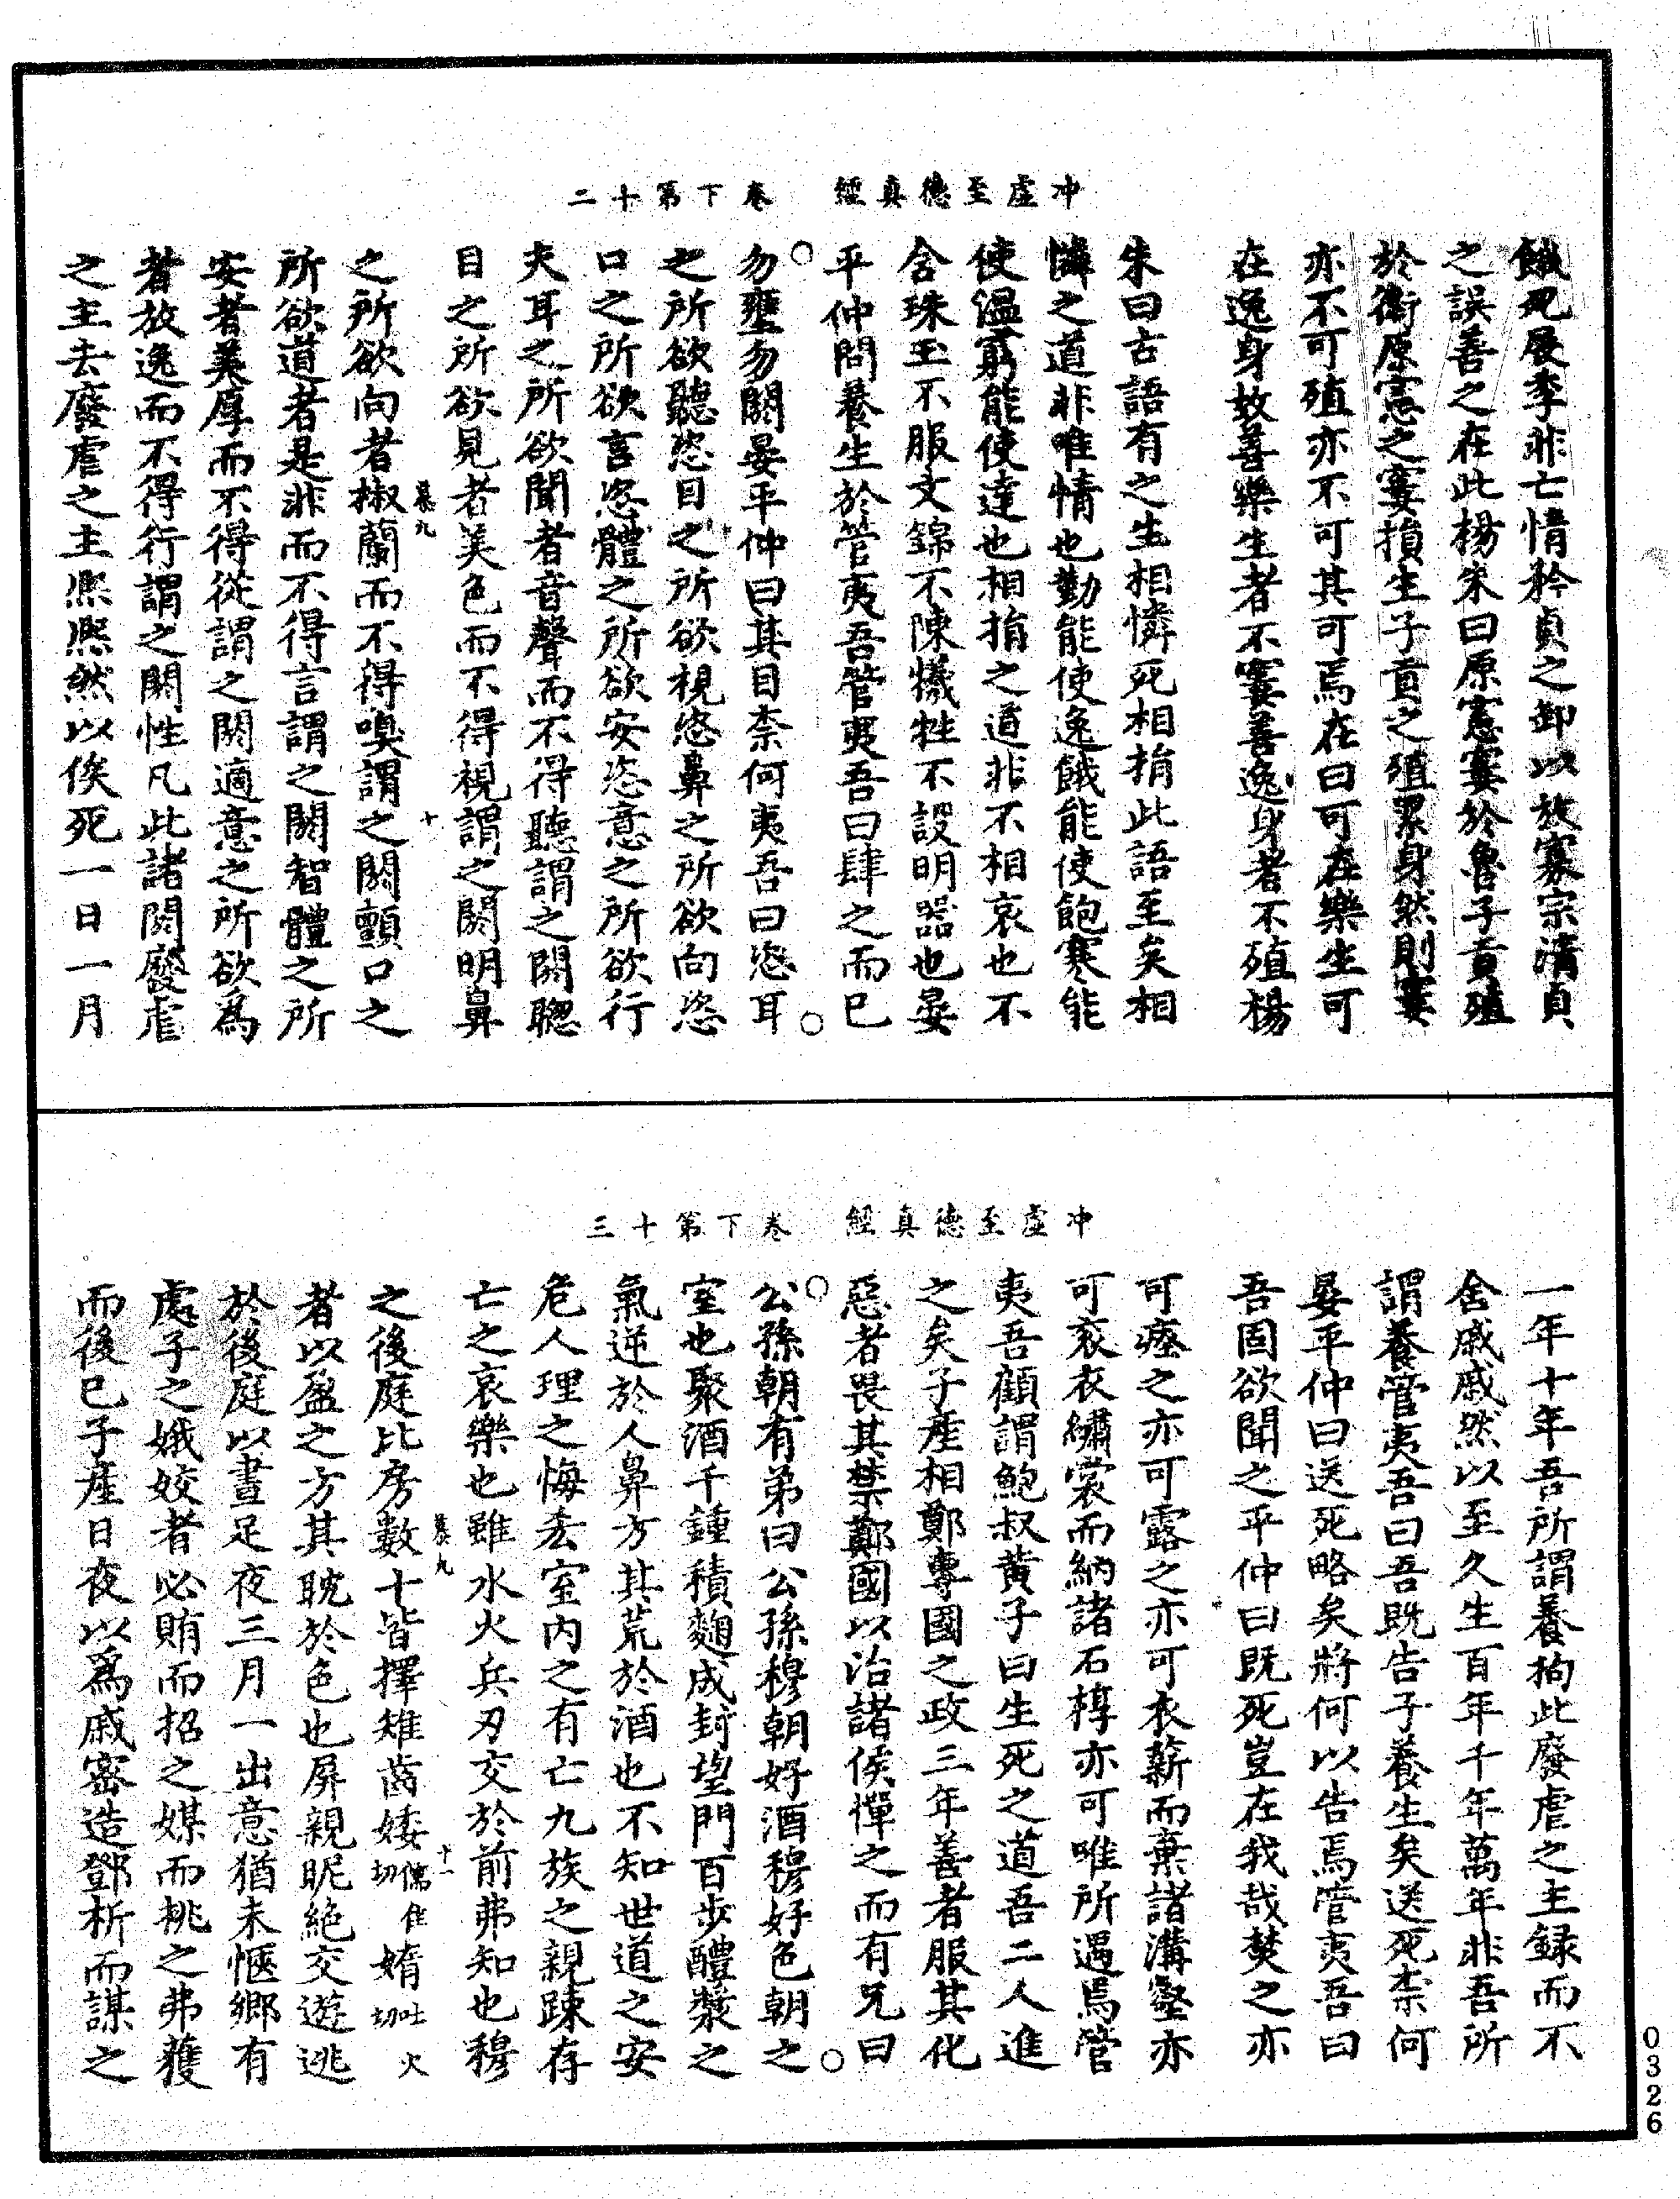 冲虛至德真經　卷下第十二
餓死展季非亡情矜貞之卸以放寡宗清貞
之誤善之在此楊朱曰原憲窶於魯子貢殖
於衛原憲之窶損生子貢之殖累身然則窶
亦不可殖亦不可其可焉在曰可在樂生可
在逸身故善樂生者不窶善逸身者不殖楊
朱曰古語有之生相憐死相捐此語至矣相
憐之道非唯情也勤能使逸餓能使飽寒能
使溫窮能使達也相捐之道非不相哀也不
含珠玉不服文錦不陳犧牲不設明器也晏
平仲問養生於管夷吾管夷吾曰肆之而已
勿壅勿閼晏平仲曰其目柰何夷吾曰恣耳
之所欲聽恣目之所欲視恣鼻之所欲向恣
口之所欲言恣體之所欲安恣意之所欲行
夫耳之所欲聞者音聲而不得聽謂之閼聦
目之所欲見者美色而不得視謂之閼明鼻
慕九　十
之所欲向者椒蘭而不得嗅謂之閼顫口之
所欲道者是非而不得言謂之閼智體之所
安者美厚而不得從謂之閼適意之所欲爲
者放逸而不得行謂之閼性凡此諸閼廢虐
之主去廢虐之主熈熈然以俟死一日一月
冲虛至德真經　卷下第十三
一年十年吾所謂養拘此廢虐之主録而不
舍戚戚然以至久生百年千年萬年非吾所
謂養管夷吾曰吾既告子養生矣送死柰何
晏平仲曰送死略矣將何以告焉管夷吾曰
吾固欲聞之平仲曰既死豈在我哉焚之亦
可瘞之亦可露之亦可衣薪而棄諸溝壑亦
可衮衣繡裳而納諸石椁亦可唯所遇焉管
夷吾顧謂鮑叔黃子曰生死之道吾二人進
之矣子産相鄭專國之政三年善者服其化
惡者畏其禁鄭國以治諸侯憚之而有兄曰
公孫朝有弟曰公孫穆朝好酒穆好色朝之
室也聚酒千鍾積麴成封望門百步醴漿之
氣逆於人鼻方其荒於酒也不知世道之安
危人理之悔吝室內之有亡九族之親踈存
亡之哀樂也雖水火兵刃交於前弗知也穆
慕九　十一
之後庭比房數十皆擇雉齒婑儒隹切媠吐火切
者以盈之方其耽於色也屏親昵絕交遊逃
於後庭以晝足夜三月一出意猶未愜鄉有
處子之娥姣者必賄而招之媒而挑之弗獲
而後已子産日夜以爲戚密造鄧析而謀之
0326